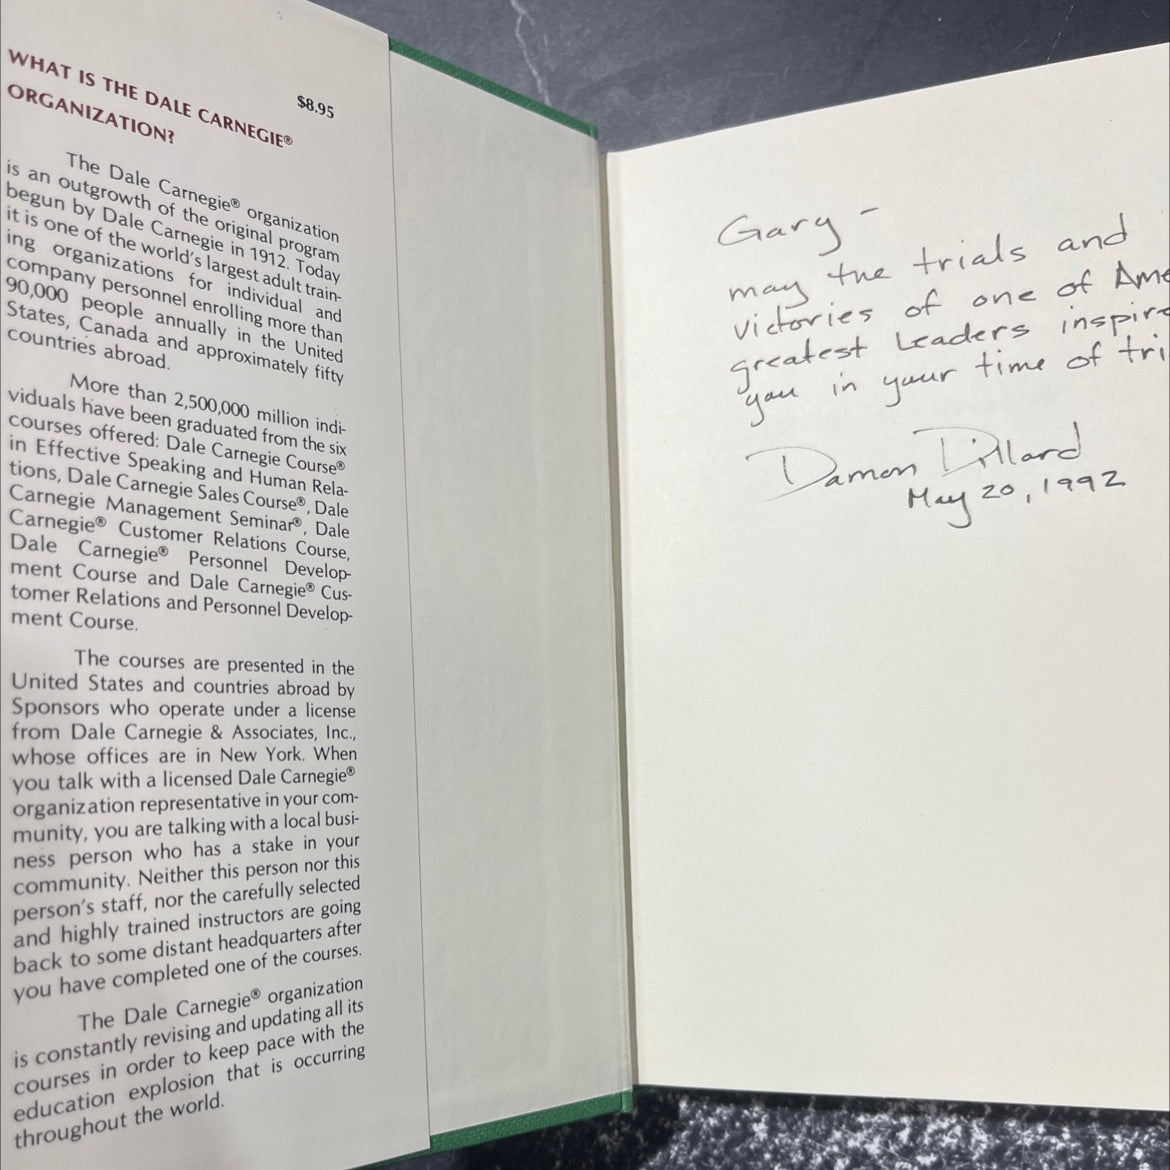 WHAT IS THE DALE CARNEGIE®
ORGANIZATION?
$8.95
The Dale Carnegie® organization
is an outgrowth of the original program
begun by Dale Carnegie in 1912. Today
it is one of the world's largest adult train-
ing organizations for individual and
company personnel enrolling more than
90,000 people annually in the United
States, Canada and approximately fifty
countries abroad.
More than 2,500,000 million indi-
viduals have been graduated from the six
courses offered: Dale Carnegie Course®
in Effective Speaking and Human Rela-
tions, Dale Carnegie Sales Course®, Dale
Carnegie Management Seminar®, Dale
Carnegie® Customer Relations Course,
Dale Carnegie® Personnel Develop-
ment Course and Dale Carnegie® Cus-
tomer Relations and Personnel Develop-
ment Course.
The courses are presented in the
United States and countries abroad by
Sponsors who operate under a license
from Dale Carnegie & Associates, Inc.,
whose offices are in New York. When
you talk with a licensed Dale Carnegie®
organization representative in your com-
munity, you are talking with a local busi-
ness person who has a stake in your
community. Neither this person nor this
person's staff, nor the carefully selected
and highly trained instructors are going
back to some distant headquarters after
you have completed one of the courses.
The Dale Carnegie® organization
is constantly revising and updating all its
courses in order to keep pace with the
education explosion that is occurring
throughout the world.
Gary -
may the trials and
victories of one of Ame
greatest leaders inspire
you in your time of tri
Damon Dillard
May 20, 1992